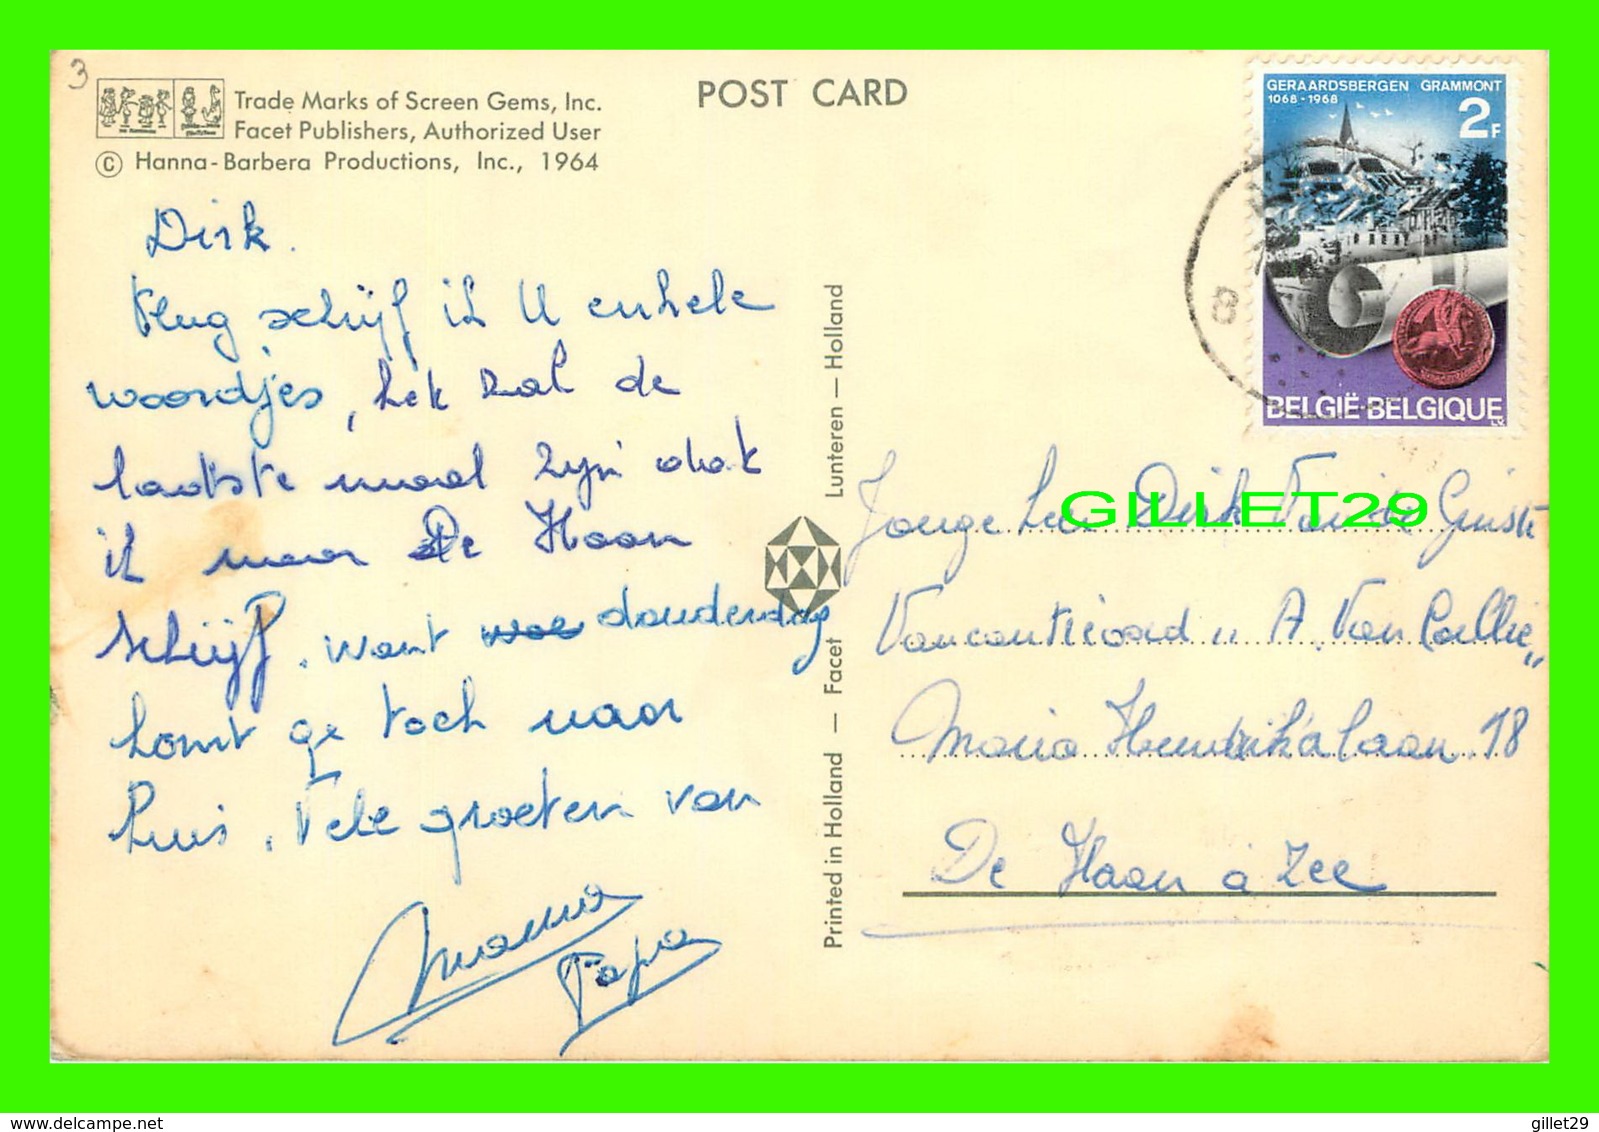 3
Trade Marks of Screen Gems, Inc.
Facet Publishers, Authorized User
© Hanna-Barbera Productions, Inc., 1964
POST CARD
GERAARDSBERGEN GRAMMONT
1068-1968
2F
BELGIË-BELGIQUE
B
Dirk.
Vlug schrijf ik U enkele
woordjes, het zal de
laatste maal zijn dat
ik naar De Haan
schrijf, want donderdag
komt ge toch naar
huis. Vele groeten van
Mama
Papa
Printed in Holland — Facet
Lunteren — Holland
Jonge heer Dirk Van de Ginste
Vacantieoord "A. Van Caillie"
Maria Hendrikalaan 18
De Haan a Zee
GILLET29
www.delcampe.net
gillet29